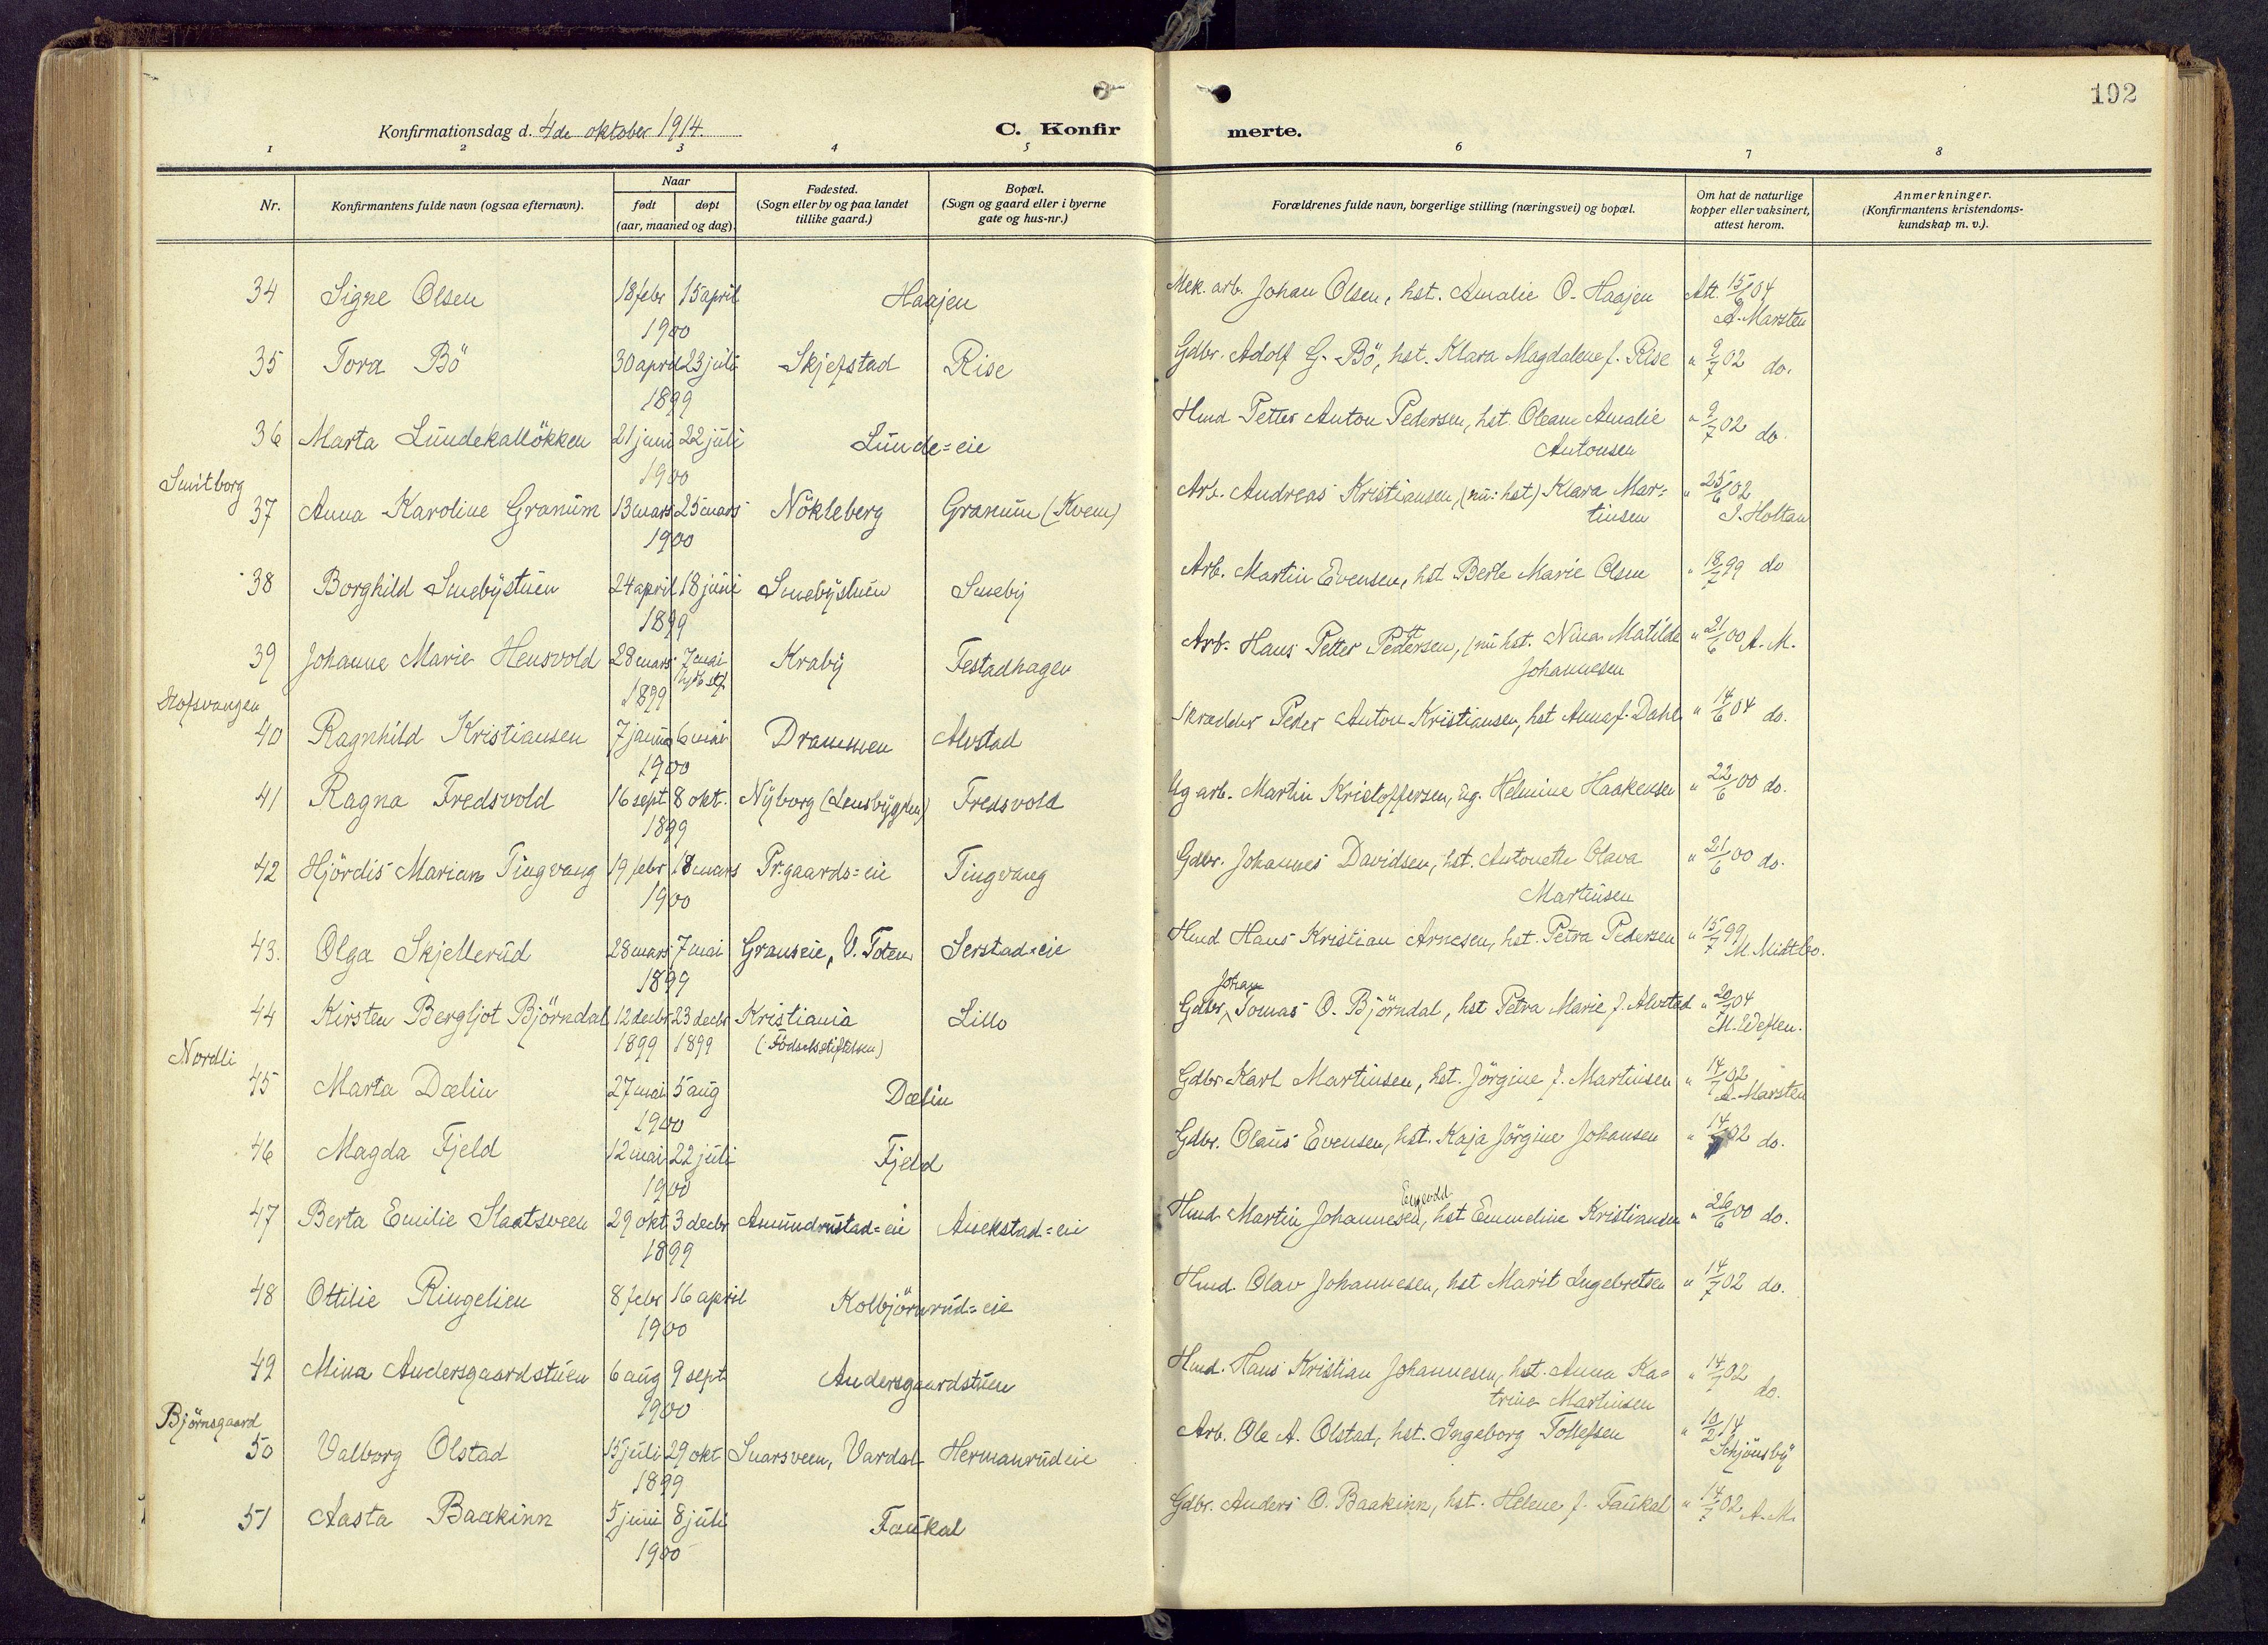 192
Konfirmationsdag d. 4de oktober 1914.
C. Konfir merte.
1 2 3 4 5 6 7 8
Nr.
Konfirmantens fulde navn (ogsaa efternavn).
Naar
født døpt
(aar, maaned og dag).
Fødested.
(Sogn eller by og paa landet
tillike gaard.)
Bopæl.
(Sogn og gaard eller i byerne
gate og hus-nr.)
Forældrenes fulde navn, borgerlige stilling (næringsvei) og bopæl.
Om hat de naturlige
kopper eller vaksinert,
attest herom.
Anmerkninger.
(Konfirmantens kristendoms-
kundskap m. v.).
34 Signe Olsen 18 febr 15 april Haajen Mek. arb. Johan Olsen, hst. Amalie O. Haajen Att. 15/6 04
1900 A. Marsten
35 Tora Bö 30 april 23 juli Skjefstad Rise Gdbr. Adolf G. Bö, hst. Klara Magdalene f. Rise " 9/7 02 do.
1899
36 Marta Lundekalløkken 21 juni 22 juli Lunde=eie Hmd Petter Anton Pedersen, hst. Oleane Amalie " 9/7 02 do.
1900 Antonsen
Smitborg
37 Anna Karoline Granum 13 mars 25 mars Nökleberg Granum (Kvem) Arb. Andreas Kristiansen, (nu: hst) Klara Mar= " 25/6 02
1900 tinsen J. Holtan
38 Borghild Smebystuen 24 april 18 juni Smebystuen Smeby Arb. Martin Evensen, hst Berte Marie Olsen " 18/7 99 do
1899
39 Johanne Marie Hensvold 28 mars 7 mai Kraby Festadhagen Arb. Hans Petter Pedersen, (nu hst. Nina Matilde " 21/6 00 A. M.
1899 Johannesen
Hofsvangen
40 Ragnhild Kristiansen 7 janu 6 mai Drammen Alvstad Skrædder Peder Anton Kristiansen, hst Anna f. Dahl " 14/6 04 do.
1900
41 Ragna Fredsvold 16 sept 8 okt. Nyborg (Lensbygden) Fredsvold Ug arb. Martin Kristoffersen, ug. Helmine Haakensen " 22/6 00 do.
1899
42 Hjördis Marian Tingvang 19 febr 18 mars Pr.gaards=eie Tingvang Gdbr. Johannes Davidsen, hst. Antonette Olava " 21/6 00 do.
1900 Martinsen
43. Olga Skjellerud 28 mars 7 mai Granseie, V. Toten Jerstad=eie Hmd Hans Kristian Arnesen, hst. Petra Pedersen " 15/7 99
1899 M. Midtbo.
Johan
44 Kirsten Bergljot Björndal 12 decbr 23 decbr Kristiania Lillo Gdbr. Tomas O. Björndal, hst Petra Marie f. Alvstad " 04
1899 1899 (Födselsstiftelsen) M. Weflen.
Nordli
45 Marta Dælin 27 mai 5 aug Dælin Gdbr. Karl Martinsen, hst. Jörgine f. Martinsen " 14/7 02
1900 A. Marsten
46 Magda Fjeld 12 mai 22 juli Fjeld Gdbr. Olaus Evensen, hst. Kaja Jörgine Johansen " 14/7 02 do.
1900
Engevold
47 Berta Emilie Slaatsveen 29 okt 3 decbr Amundrustad=eie Anekstad=eie Hmd. Martin Johannesen, hst Emmeline Kristiansen " 26/6 00 do.
1899
48 Ottilie Ringelien 8 febr 16 april Kolbjörnrud=eie Hmd. Olav Johannesen, hst Marit Ingebretsen " 14/7 02 do.
1900
49 Mina Andersgaardstuen 6 aug 9 sept Andersgaardstuen Hmd. Hans Kristian Johannesen, hst. Anna Ka= " 14/7 02 do.
1900 trine Martinsen
Björnsgaard
50 Valborg Olstad 15 juli 29 okt Snarsveen, Vardal Hermanrudeie Arb. Ole A. Olstad, hst. Ingeborg Tollefsen " 10/2 14
1899 Schjönsby
51 Aasta Baakinn 5 juni 8 juli Faukal Gdbr. Anders O. Baakinn, hst. Helene f. Faukal " 14/7 02 A. M.
1900